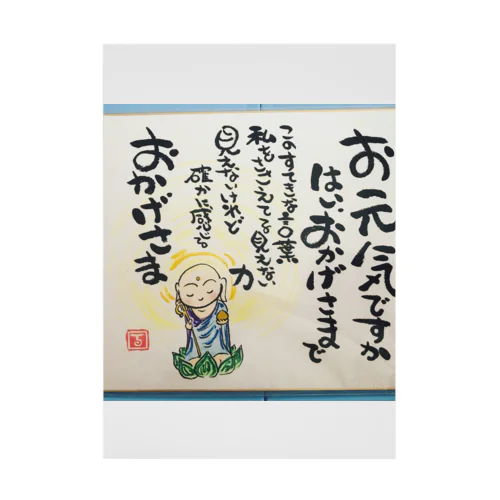 お元気ですか
はいおかげさまで
このすてきな言葉
私をささえてる見えない
力
見えないけれど
確かに感じる
おかげさま